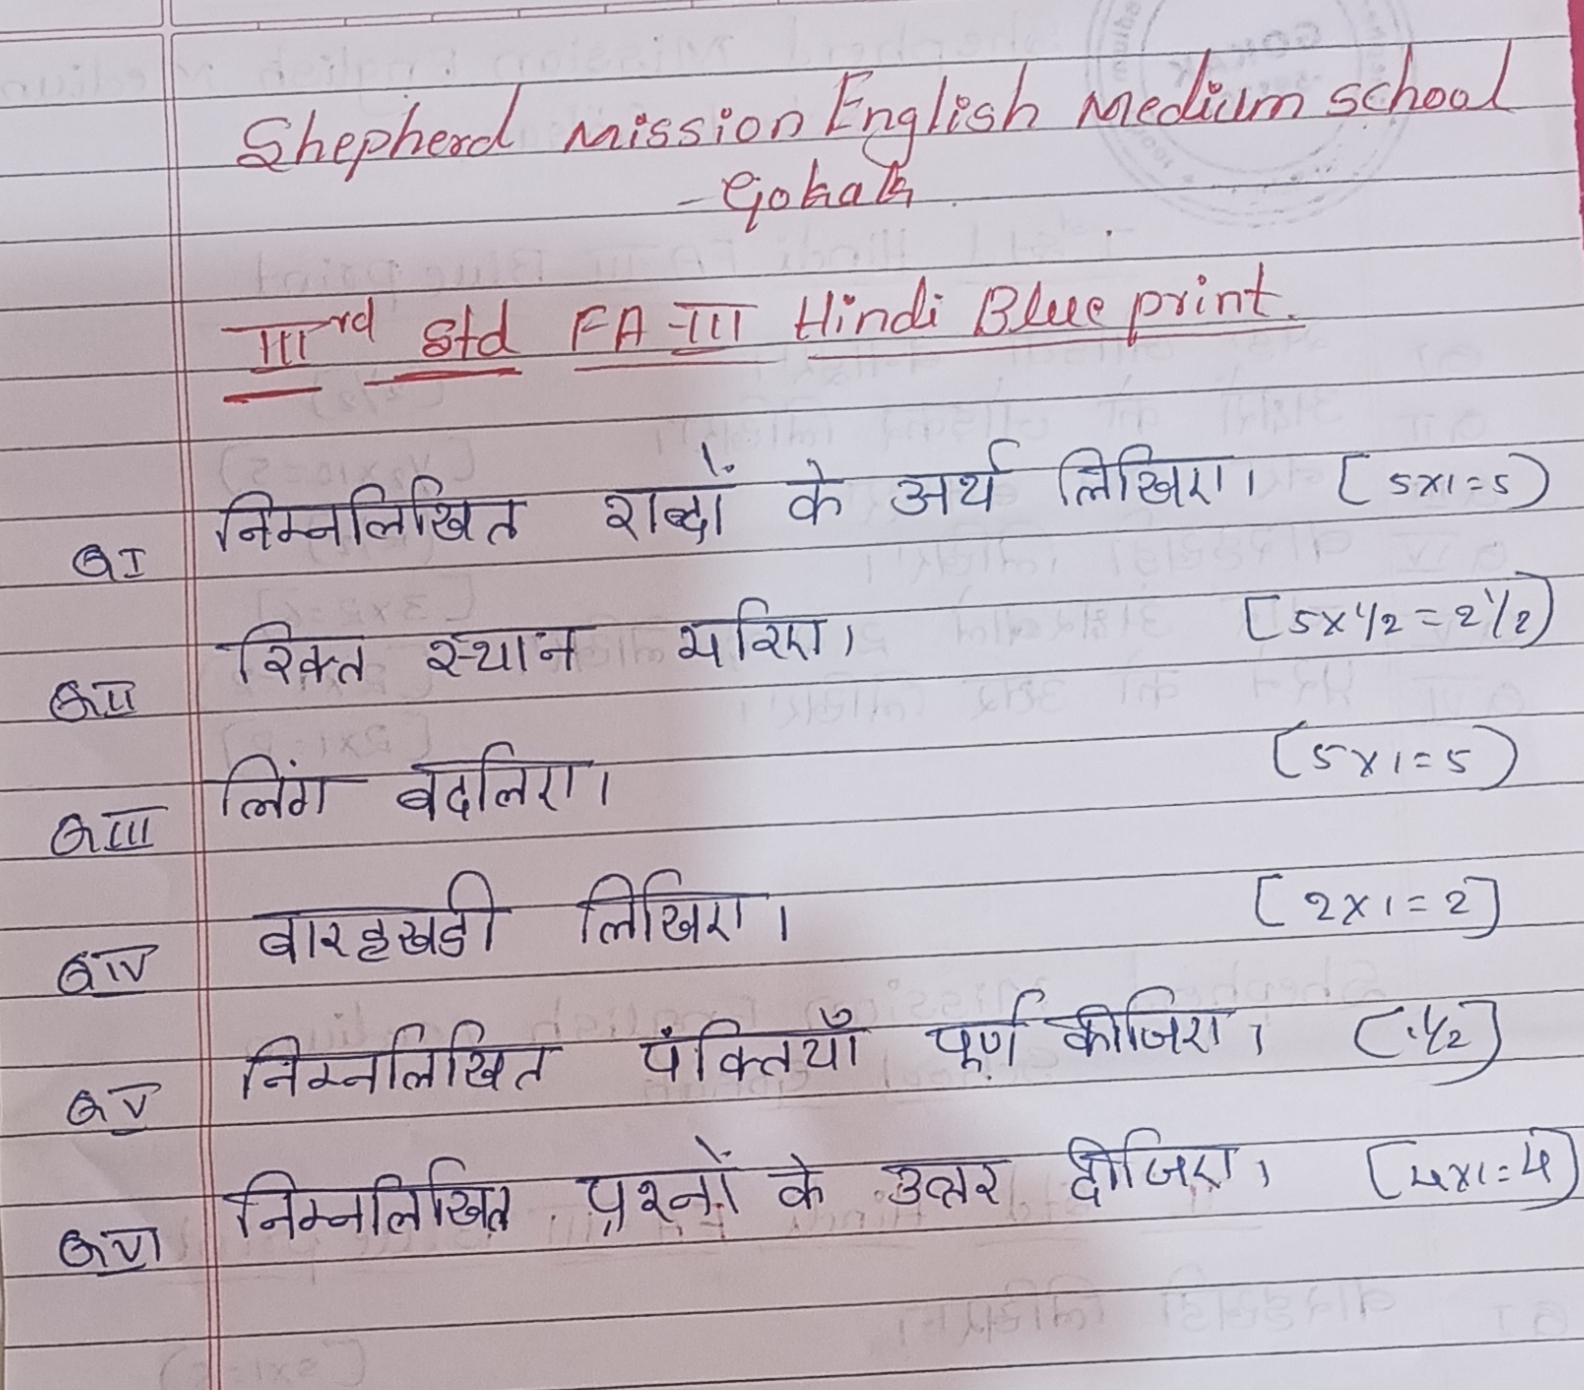 Shepherd Mission English Medium school
- Gokak
IIIrd Std FA-III Hindi Blue print.
QI निम्नलिखित शब्दों के अर्थ लिखिए। [5x1=5)
QII रिक्त स्थान भरिए। [5x1/2=2 1/2)
QIII लिंग बदलिए। (5x1=5)
QIV बारहखडी लिखिए। [2x1=2]
QV निम्नलिखित पंक्तियाँ पूर्ण कीजिए। (1 1/2]
QVI निम्नलिखित प्रश्नों के उत्तर दीजिए। [4x1=4)